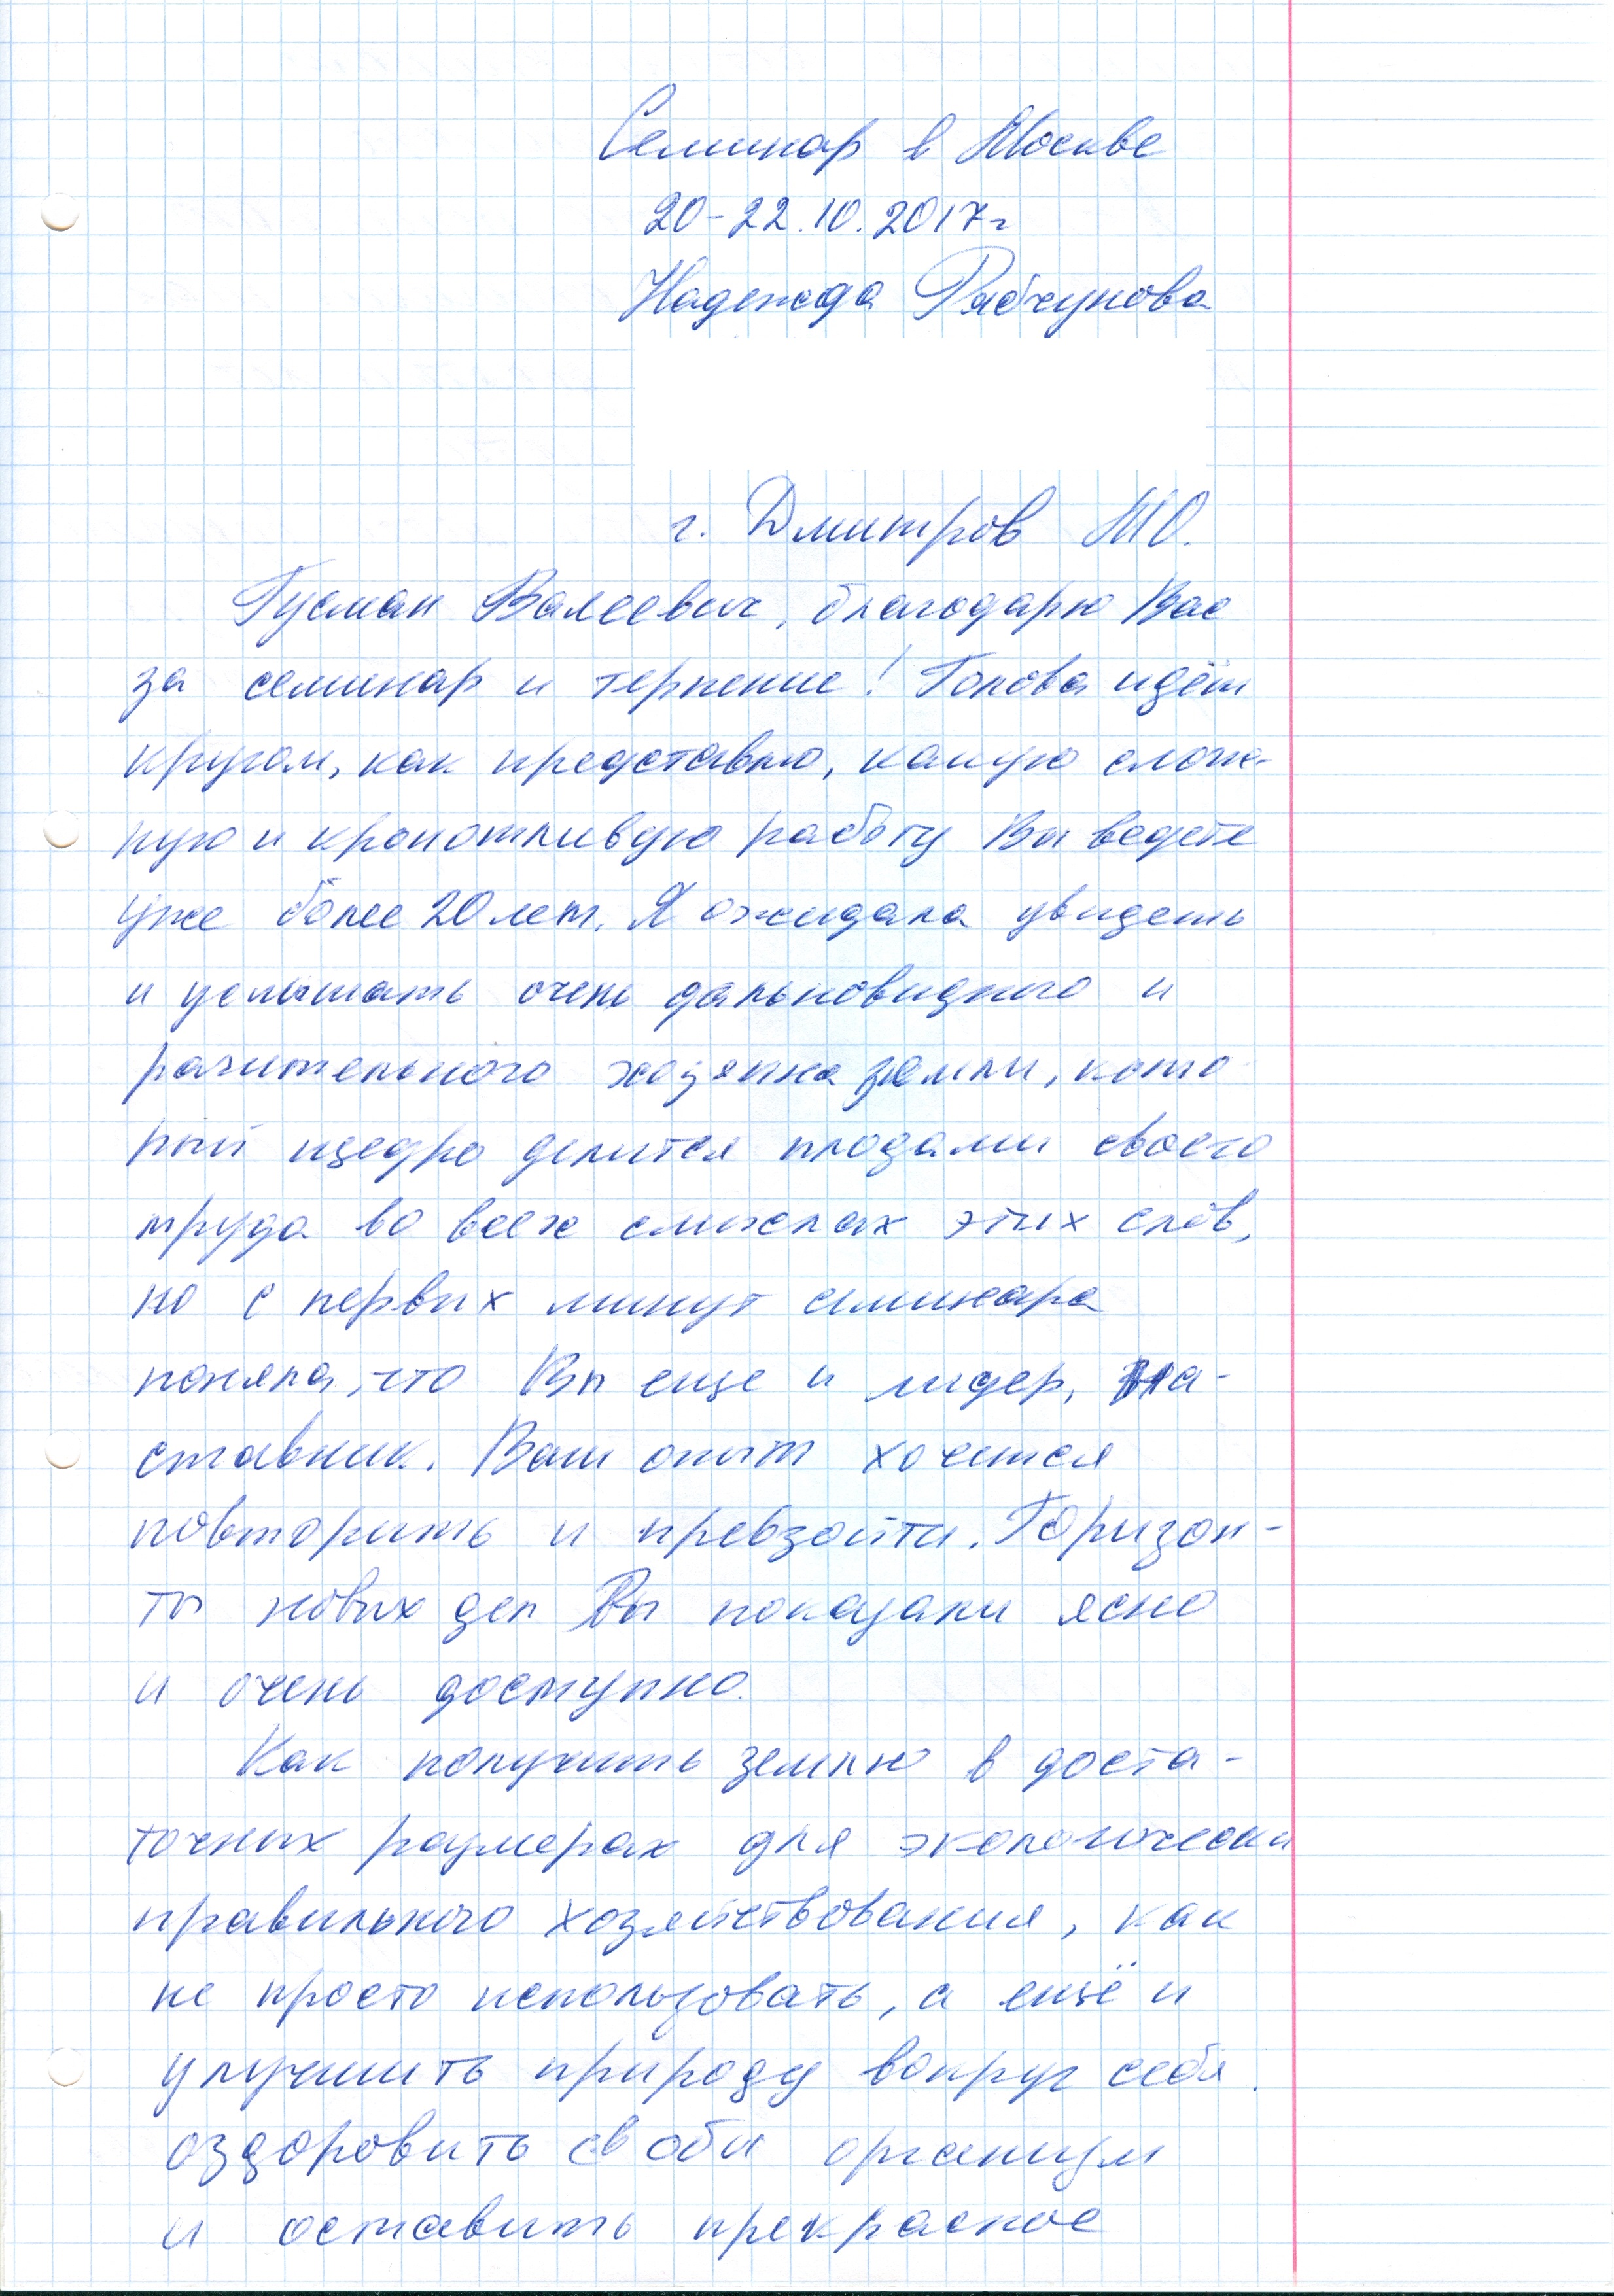 Семинар в Москве
20-22.10.2017г
Надежда Рабчунова
г. Дмитров МО.
Гусман Валеевич, благодарю Вас
за семинар и терпение! Голова идёт
кругом, как представлю, какую слож-
ную и кропотливую работу Вы ведете
уже более 20 лет. Я ожидала увидеть
и услышать очень дальновидного и
рачительного хозяина земли, кото
рый щедро делится плодами своего
труда во всех смыслах этих слов,
но с первых минут семинара
поняла, что Вы еще и лидер, на-
ставник. Ваш опыт хочется
повторить и превзойти. Горизон-
ты новых дел Вы показали ясно
и очень доступно.
Как получить землю в доста-
точных размерах для экологически
правильного хозяйствования, как
не просто использовать, а ещё и
улучшить природу вокруг себя.
оздоровить свой организм
и оставить прекрасное